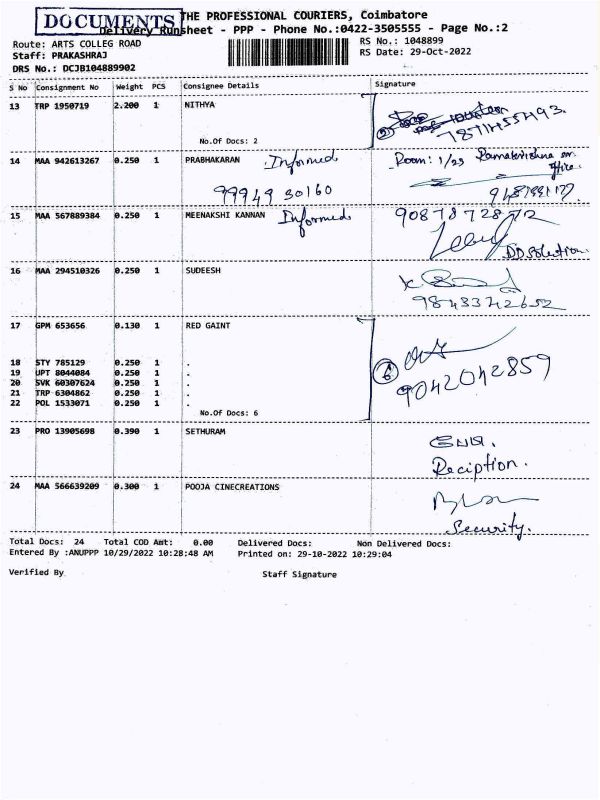 DOCUMENTS
THE PROFESSIONAL COURIERS, Coimbatore
Delivery Runsheet - PPP - Phone No.:0422-3505555 - Page No.:2
Route: ARTS COLLEG ROAD
RS No.: 1048899
Staff: PRAKASHRAJ
RS Date: 29-Oct-2022
DRS No.: DCJB104889902
S No Consignment No Weight PCS Consignee Details Signature
13 TRP 1950719 2.200 1 NITHYA
No.Of Docs: 2
14 MAA 942613267 0.250 1 PRABHAKARAN Informed Room: 1/23 Ramakrishna
99949 30160
15 MAA 567889384 0.250 1 MEENAKSHI KANNAN Informed
16 MAA 294510326 0.250 1 SUDEESH
98433742652
17 GPM 653656 0.130 1 RED GAINT
18 STY 785129 0.250 1 .
19 UPT 8044084 0.250 1 .
20 SVK 60307624 0.250 1 .
21 TRP 6304862 0.250 1 .
22 POL 1533071 0.250 1 .
6
9042042859
No.Of Docs: 6
23 PRO 13905698 0.390 1 SETHURAM
Reciption.
24 MAA 566639209 0.300 1 POOJA CINECREATIONS
Security.
Total Docs: 24 Total COD Amt: 0.00 Delivered Docs: Non Delivered Docs:
Entered By :ANUPPP 10/29/2022 10:28:48 AM Printed on: 29-10-2022 10:29:04
Verified By Staff Signature